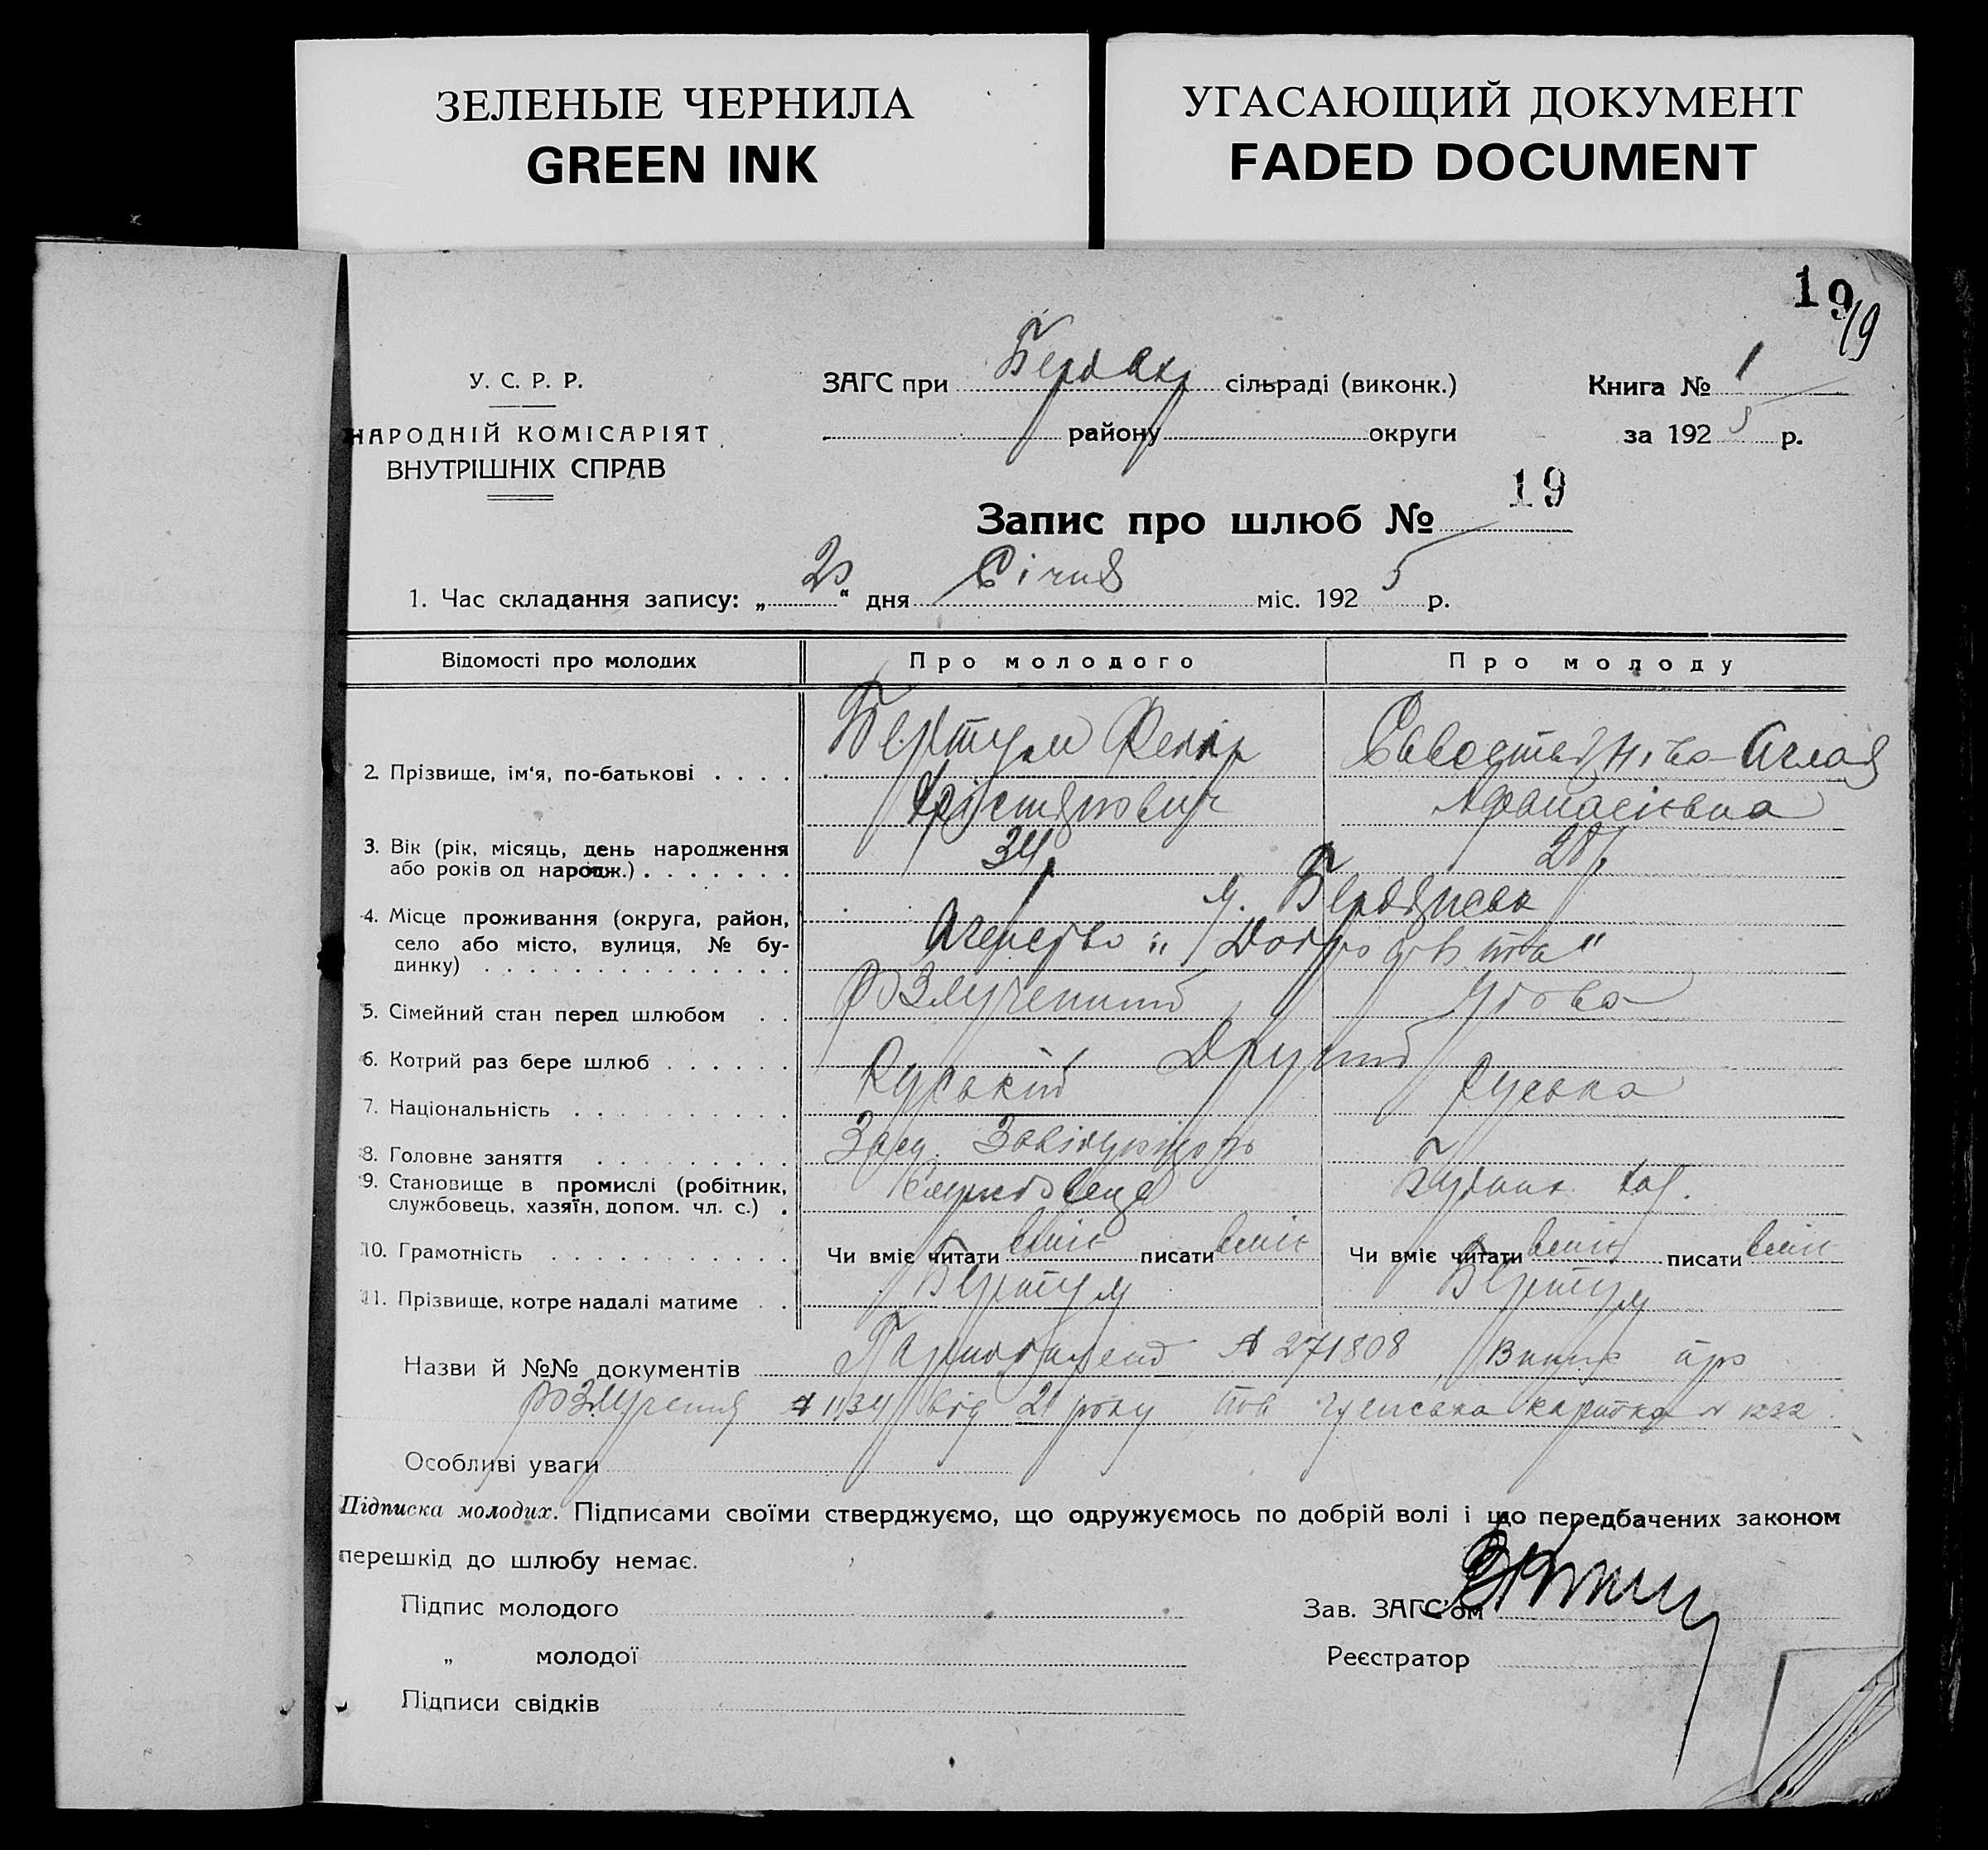 ЗЕЛЕНЫЕ ЧЕРНИЛА
GREEN INK
УГАСАЮЩИЙ ДОКУМЕНТ
FADED DOCUMENT
19
19
У. С. Р. Р.
НАРОДНІЙ КОМІСАРІЯТ
ВНУТРІШНІХ СПРАВ
ЗАГС при сільраді (виконк.)
району округи
Книга № 1
за 1925 р.
Запис про шлюб № 19
1. Час складання запису: „ “ дня Січня міс. 1925 р.
Відомості про молодих Про молодого Про молоду
2. Прізвище, ім‘я, по-батькові Бертум Аглая
Афанасієвна
3. Вік (рік, місяць, день народження або років од народж.) 34 28
4. Місце проживання (округа, район, село або місто, вулиця, № будинку) м. Бердянськ
Агенство „Доброфлота“
5. Сімейний стан перед шлюбом Розлучений Удова
6. Котрий раз бере шлюб Другий
7. Національність Руський Руська
8. Головне заняття
9. Становище в промислі (робітник, службовець, хазяїн, допом. чл. с.)
10. Грамотність Чи вміє читати вміє писати вміє Чи вміє читати вміє писати вміє
11. Прізвище, котре надалі матиме Бертум Бертум
Назви й №№ документів 271808 про
розлучення 1134 від 21 року картка N 1232
Особливі уваги
Підписка молодих. Підписами своїми стверджуємо, що одружуємось по добрій волі і що передбачених законом
перешкід до шлюбу немає.
Підпис молодого
„ молодої
Підписи свідків
Зав. ЗАГС'ом
Реєстратор